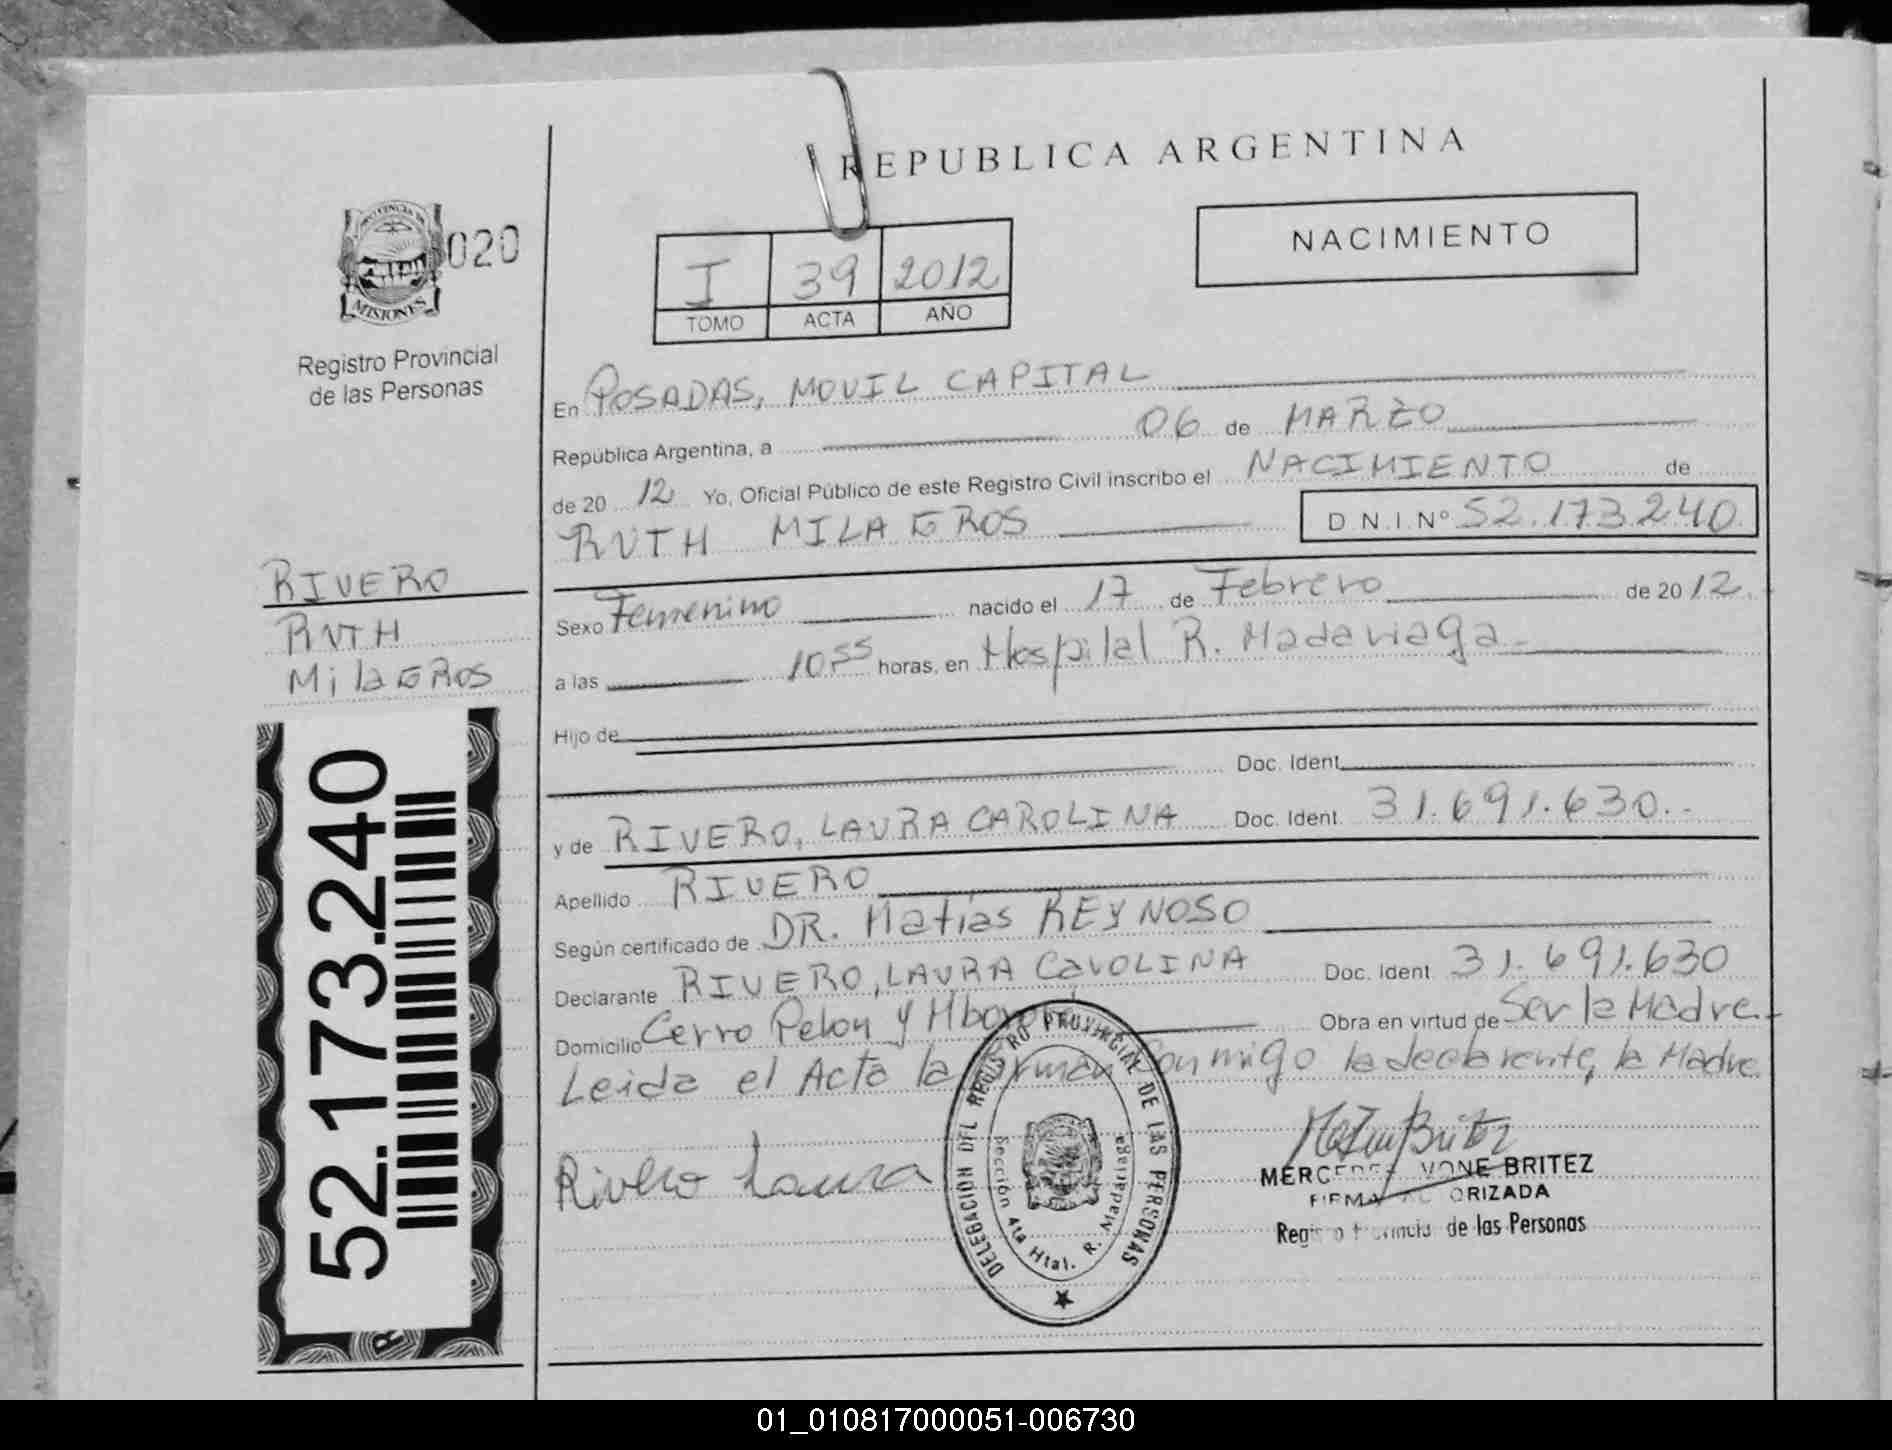 REPUBLICA ARGENTINA
PROVINCIA DE
MISIONES
020
Registro Provincial
de las Personas
I 39 2012
TOMO ACTA AÑO
NACIMIENTO
En POSADAS, MOVIL CAPITAL
República Argentina, a 06 de MARZO
de 20 12 Yo, Oficial Público de este Registro Civil inscribo el NACIMIENTO de
RUTH MILAGROS D.N.I.Nº 52.173.240
RIVERO
RUTH
MilaGROS
52.173.240
Sexo Femenino nacido el 17 de Febrero de 2012.
a las 10:55 horas, en Hospital R. Madariaga.-
Hijo de
Doc. Ident.
y de RIVERO, LAURA CAROLINA Doc. Ident. 31.691.630.-
Apellido RIVERO
Según certificado de DR. Matías REYNOSO
Declarante RIVERO, LAURA CaROLINA Doc. Ident. 31.691.630
Domicilio Cerro Pelon y Obra en virtud de Ser la Madre.-
Leida el Acta la firman Conmigo la declarante, la Madre.
Rivero Laura
DELEGACION DEL REGISTRO PROVINCIAL DE LAS PERSONAS
Sección 4ta Htal. R. Madariaga
MERCEDES IVONE BRITEZ
FIRMA AUTORIZADA
Registro Provincial de las Personas
01_010817000051-006730